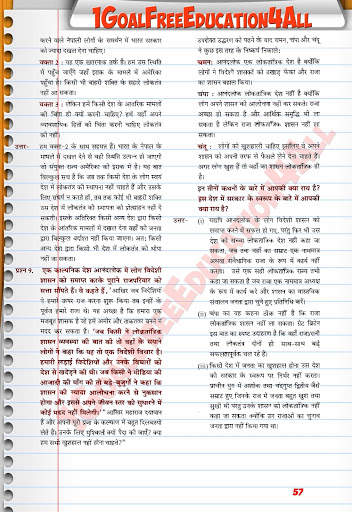 1GoalFreeEducation4All
करने वाले नेपाली लोगों के समर्थन में भारत सरकार
को ज्यादा दखल देना चाहिए।
वक्ता 2 : यह एक खतरनाक तर्क है। हम उस स्थिति
में पहुँच जाएँगे जहाँ इराक के मामले में अमेरिका
पहुँचा है। किसी भी बाहरी शक्ति के सहारे लोकतंत्र
नहीं आ सकता।
वक्ता 3 : लेकिन हमें किसी देश के आंतरिक मामलों
की चिंता ही क्यों करनी चाहिए? हमें वहाँ अपने
व्यावसायिक हितों की चिंता करनी चाहिए लोकतंत्र
की नहीं।
उत्तर- हम वक्ता-2 के साथ सहमत हैं। भारत के नेपाल के
मामले में दखल देने से वही स्थिति उत्पन्न हो जाएगी
जो संयुक्त राज्य अमेरिका की इराक में है। यह बात
बिल्कुल सच है कि जब तक किसी देश के लोग स्वयं
देश में लोकतंत्र की स्थापना नहीं चाहते हैं और उसके
लिए संघर्ष न करते हों, तब तक कोई भी बाहरी शक्ति
उस देश में लोकतंत्र की स्थापना को प्रोत्साहन नहीं दे
सकती। इसके अतिरिक्त किसी अन्य देश द्वारा किसी
देश के आंतरिक मामलों में दखल देना वहाँ की जनता
द्वारा बिल्कुल बर्दाश्त नहीं किया जाएगा। अतः किसी
अन्य देश द्वारा किसी भी देश में लोकतंत्र को थोपा
नहीं जा सकता।
प्रश्न 9. एक काल्पनिक देश आनंदलोक में लोग विदेशी
शासन को समाप्त करके पुराने राजपरिवार को
सत्ता सौंपते हैं। वे कहते हैं, "आखिर जब विदेशियों
ने हमारे ऊपर राज करना शुरू किया तब इन्हीं के
पूर्वज हमारे राजा थे। यह अच्छा है कि हमारा एक
मजबूत शासक है जो हमें अमीर और ताकतवर बनने में
मदद कर सकता है।" जब किसी ने लोकतांत्रिक
शासन व्यवस्था की बात की तो वहाँ के सयाने
लोगों ने कहा कि यह तो एक विदेशी विचार है।
हमारी लड़ाई विदेशियों और उनके विचारों को
देश से खदेड़ने की थी। जब किसी ने मीडिया की
आजादी की माँग की तो बड़े-बुजुर्गों ने कहा कि
शासन की ज्यादा आलोचना करने से नुकसान
होगा और इससे अपने जीवन स्तर को सुधारने में
कोई मदद नहीं मिलेगी।" "आखिर महाराज दयावान
हैं और अपनी पूरी प्रजा के कल्याण में बहुत दिलचस्पी
लेते हैं। उनके लिए मुश्किलें क्यों पैदा की जाएँ? क्या
हम सभी खुशहाल नहीं होना चाहते?"
उपरोक्त उद्धरण को पढ़ने के बाद चमन, चंपा और चंदू
ने कुछ इस तरह के निष्कर्ष निकाले:
चमन: आनंदलोक एक लोकतांत्रिक देश है क्योंकि
लोगों ने विदेशी शासकों को उखाड़ फेंका और राजा
का शासन बहाल किया।
चंपा : आनंदलोक लोकतांत्रिक देश नहीं है क्योंकि
लोग अपने शासन की आलोचना नहीं कर सकते। राजा
अच्छा हो सकता है और आर्थिक समृद्धि भी ला
सकता है लेकिन राजा लोकतांत्रिक शासन नहीं ला
सकता।
चंदू : लोगों को खुशहाली चाहिए इसलिए वे अपने
शासक को अपनी तरफ से फैसले लेने देना चाहते हैं।
अगर लोग खुश हैं तो वहाँ का शासन लोकतांत्रिक ही
है।
इन तीनों कथनों के बारे में आपकी क्या राय है?
इस देश में सरकार के स्वरूप के बारे में आपकी
क्या राय है?
उत्तर- (i) यद्यपि आनंदलोक के लोग विदेशी शासन को
समाप्त करने में सफल हो गए, परंतु फिर भी उस
देश को सच्चा लोकतांत्रिक देश नहीं कहा जा
सकता, जब तक वहाँ का सम्राट एक नाममात्र
अथवा संवैधानिक राजा के रूप में कार्य नहीं
करता। उसे एक सही लोकतांत्रिक राज्य तभी
कहा जा सकता है जब राजा एक नाममात्र अध्यक्ष
के रूप में कार्य करे और शासन का वास्तविक
संचालन जनता द्वारा चुने हुए प्रतिनिधि करें।
(ii) चंपा का यह कहना ठीक नहीं है कि राजा
लोकतांत्रिक शासन नहीं ला सकता। ग्रेट ब्रिटेन
इस बात का स्पष्ट उदाहरण है कि वहाँ राजशाही
तथा लोकतंत्र दोनों ही साथ-साथ बड़े
सफलतापूर्वक चल रहे हैं।
(iii) किसी देश में जनता का खुशहाल होना उस देश
की सरकार के स्वरूप पर निर्भर नहीं करता।
प्राचीन युग में अशोक तथा चंद्रगुप्त द्वितीय जैसे
सम्राट हुए जिनके राज में जनता बहुत खुश तथा
सुखी थी परंतु उनके शासन को लोकतांत्रिक नहीं
कहा जा सकता क्योंकि उन राजाओं का चुनाव
जनता द्वारा नहीं किया गया था।
57